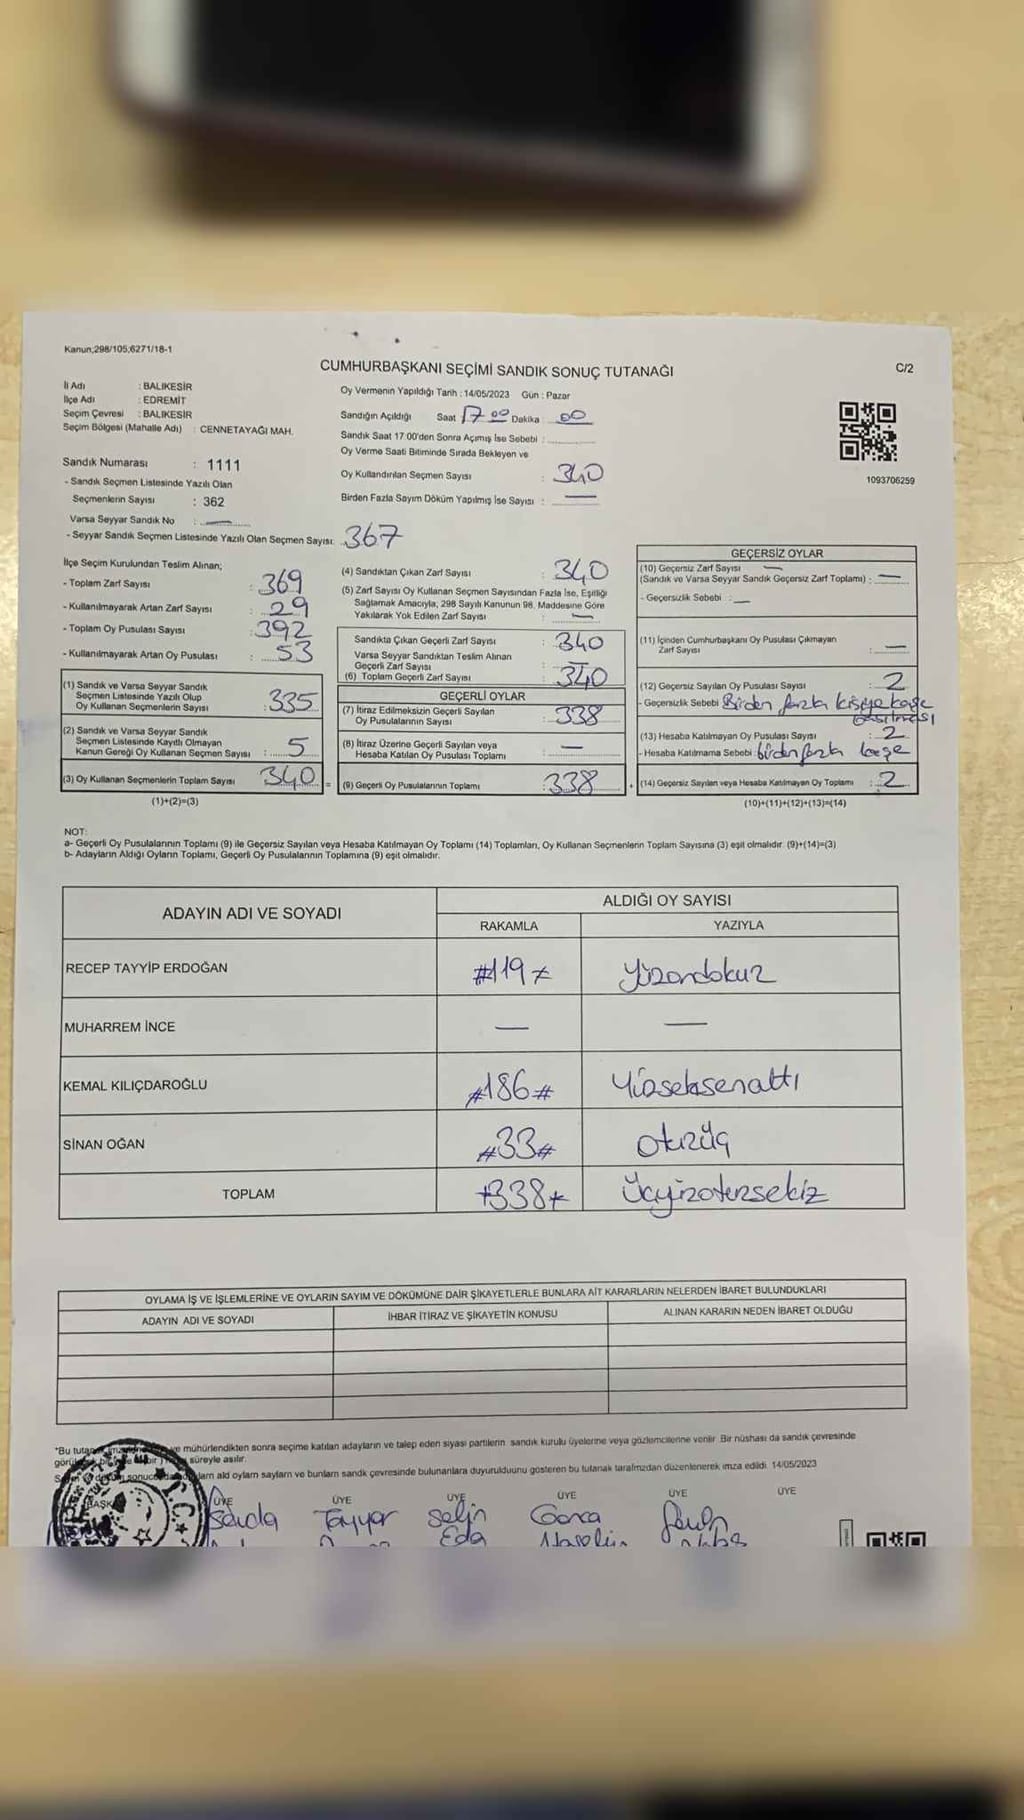 Kanun;298/105;6271/18-1
CUMHURBAŞKANI SEÇİMİ SANDIK SONUÇ TUTANAĞI
C/2
İl Adı : BALIKESİR
İlçe Adı : EDREMİT
Seçim Çevresi : BALIKESİR
Seçim Bölgesi (Mahalle Adı) : CENNETAYAĞI MAH.
Oy Vermenin Yapıldığı Tarih : 14/05/2023 Gün : Pazar
Sandığın Açıldığı Saat 17 00 Dakika 00
Sandık Saat 17.00'den Sonra Açımış İse Sebebi :
Oy Verme Saati Bitiminde Sırada Bekleyen ve
Oy Kullandırılan Seçmen Sayısı : 340
Birden Fazla Sayım Döküm Yapılmış İse Sayısı : —
1093706259
Sandık Numarası : 1111
- Sandık Seçmen Listesinde Yazılı Olan
Seçmenlerin Sayısı : 362
Varsa Seyyar Sandık No : —
- Seyyar Sandık Seçmen Listesinde Yazılı Olan Seçmen Sayısı: 367
İlçe Seçim Kurulundan Teslim Alınan;
- Toplam Zarf Sayısı : 369
- Kullanılmayarak Artan Zarf Sayısı : 29
- Toplam Oy Pusulası Sayısı : 392
- Kullanılmayarak Artan Oy Pusulası : 53
(1) Sandık ve Varsa Seyyar Sandık
Seçmen Listesinde Yazılı Olup
Oy Kullanan Seçmenlerin Sayısı : 335
(2) Sandık ve Varsa Seyyar Sandık
Seçmen Listesinde Kayıtlı Olmayan
Kanun Gereği Oy Kullanan Seçmen Sayısı : 5
(3) Oy Kullanan Seçmenlerin Toplam Sayısı : 340
(1)+(2)=(3)
(4) Sandıktan Çıkan Zarf Sayısı : 340
(5) Zarf Sayısı Oy Kullanan Seçmen Sayısından Fazla İse, Eşitliği
Sağlamak Amacıyla; 298 Sayılı Kanunun 98. Maddesine Göre
Yakılarak Yok Edilen Zarf Sayısı : —
Sandıkta Çıkan Geçerli Zarf Sayısı : 340
Varsa Seyyar Sandıktan Teslim Alınan
Geçerli Zarf Sayısı : —
(6) Toplam Geçerli Zarf Sayısı : 340
GEÇERLİ OYLAR
(7) İtiraz Edilmeksizin Geçerli Sayılan
Oy Pusulalarının Sayısı : 338
(8) İtiraz Üzerine Geçerli Sayılan veya
Hesaba Katılan Oy Pusulası Toplamı : —
(9) Geçerli Oy Pusulalarının Toplamı : 338
GEÇERSİZ OYLAR
(10) Geçersiz Zarf Sayısı —
(Sandık ve Varsa Seyyar Sandık Geçersiz Zarf Toplamı) : —
- Geçersizlik Sebebi : —
(11) İçinden Cumhurbaşkanı Oy Pusulası Çıkmayan
Zarf Sayısı : —
(12) Geçersiz Sayılan Oy Pusulası Sayısı : 2
- Geçersizlik Sebebi Birden fazla kişiye kaşe
basılması
(13) Hesaba Katılmayan Oy Pusulası Sayısı : 2
- Hesaba Katılmama Sebebi : birden fazla kaşe
(14) Geçersiz Sayılan veya Hesaba Katılmayan Oy Toplamı : 2
(10)+(11)+(12)+(13)=(14)
NOT:
a- Geçerli Oy Pusulalarının Toplamı (9) ile Geçersiz Sayılan veya Hesaba Katılmayan Oy Toplamı (14) Toplamları, Oy Kullanan Seçmenlerin Toplam Sayısına (3) eşit olmalıdır. (9)+(14)=(3)
b- Adayların Aldığı Oyların Toplamı, Geçerli Oy Pusulalarının Toplamına (9) eşit olmalıdır.
ADAYIN ADI VE SOYADI
ALDIĞI OY SAYISI
RAKAMLA
YAZIYLA
RECEP TAYYİP ERDOĞAN #119# Yüzondokuz
MUHARREM İNCE — —
KEMAL KILIÇDAROĞLU #186# Yüzseksenaltı
SİNAN OĞAN #33# otuzüç
TOPLAM #338# Üçyüzotuzsekiz
OYLAMA İŞ VE İŞLEMLERİNE VE OYLARIN SAYIM VE DÖKÜMÜNE DAİR ŞİKAYETLERLE BUNLARA AİT KARARLARIN NELERDEN İBARET BULUNDUKLARI
ADAYIN ADI VE SOYADI
İHBAR İTİRAZ VE ŞİKAYETİN KONUSU
ALINAN KARARIN NEDEN İBARET OLDUĞU
*Bu ve mühürlendikten sonra seçime katılan adayların ve talep eden siyasi partilerin sandık kurulu üyelerine veya gözlemcilerine verilir. Bir nüshası da sandık çevresinde
süreyle asılır.
ald oyların sayıları ve bunların sandık çevresinde bulunanlara duyurulduunu gösteren bu tutanak tarafımızdan düzenlenerek imza edildi. 14/05/2023
BAŞKAN ÜYE ÜYE ÜYE ÜYE ÜYE ÜYE
Tayyar Selin Gonca
Eda
T.C.